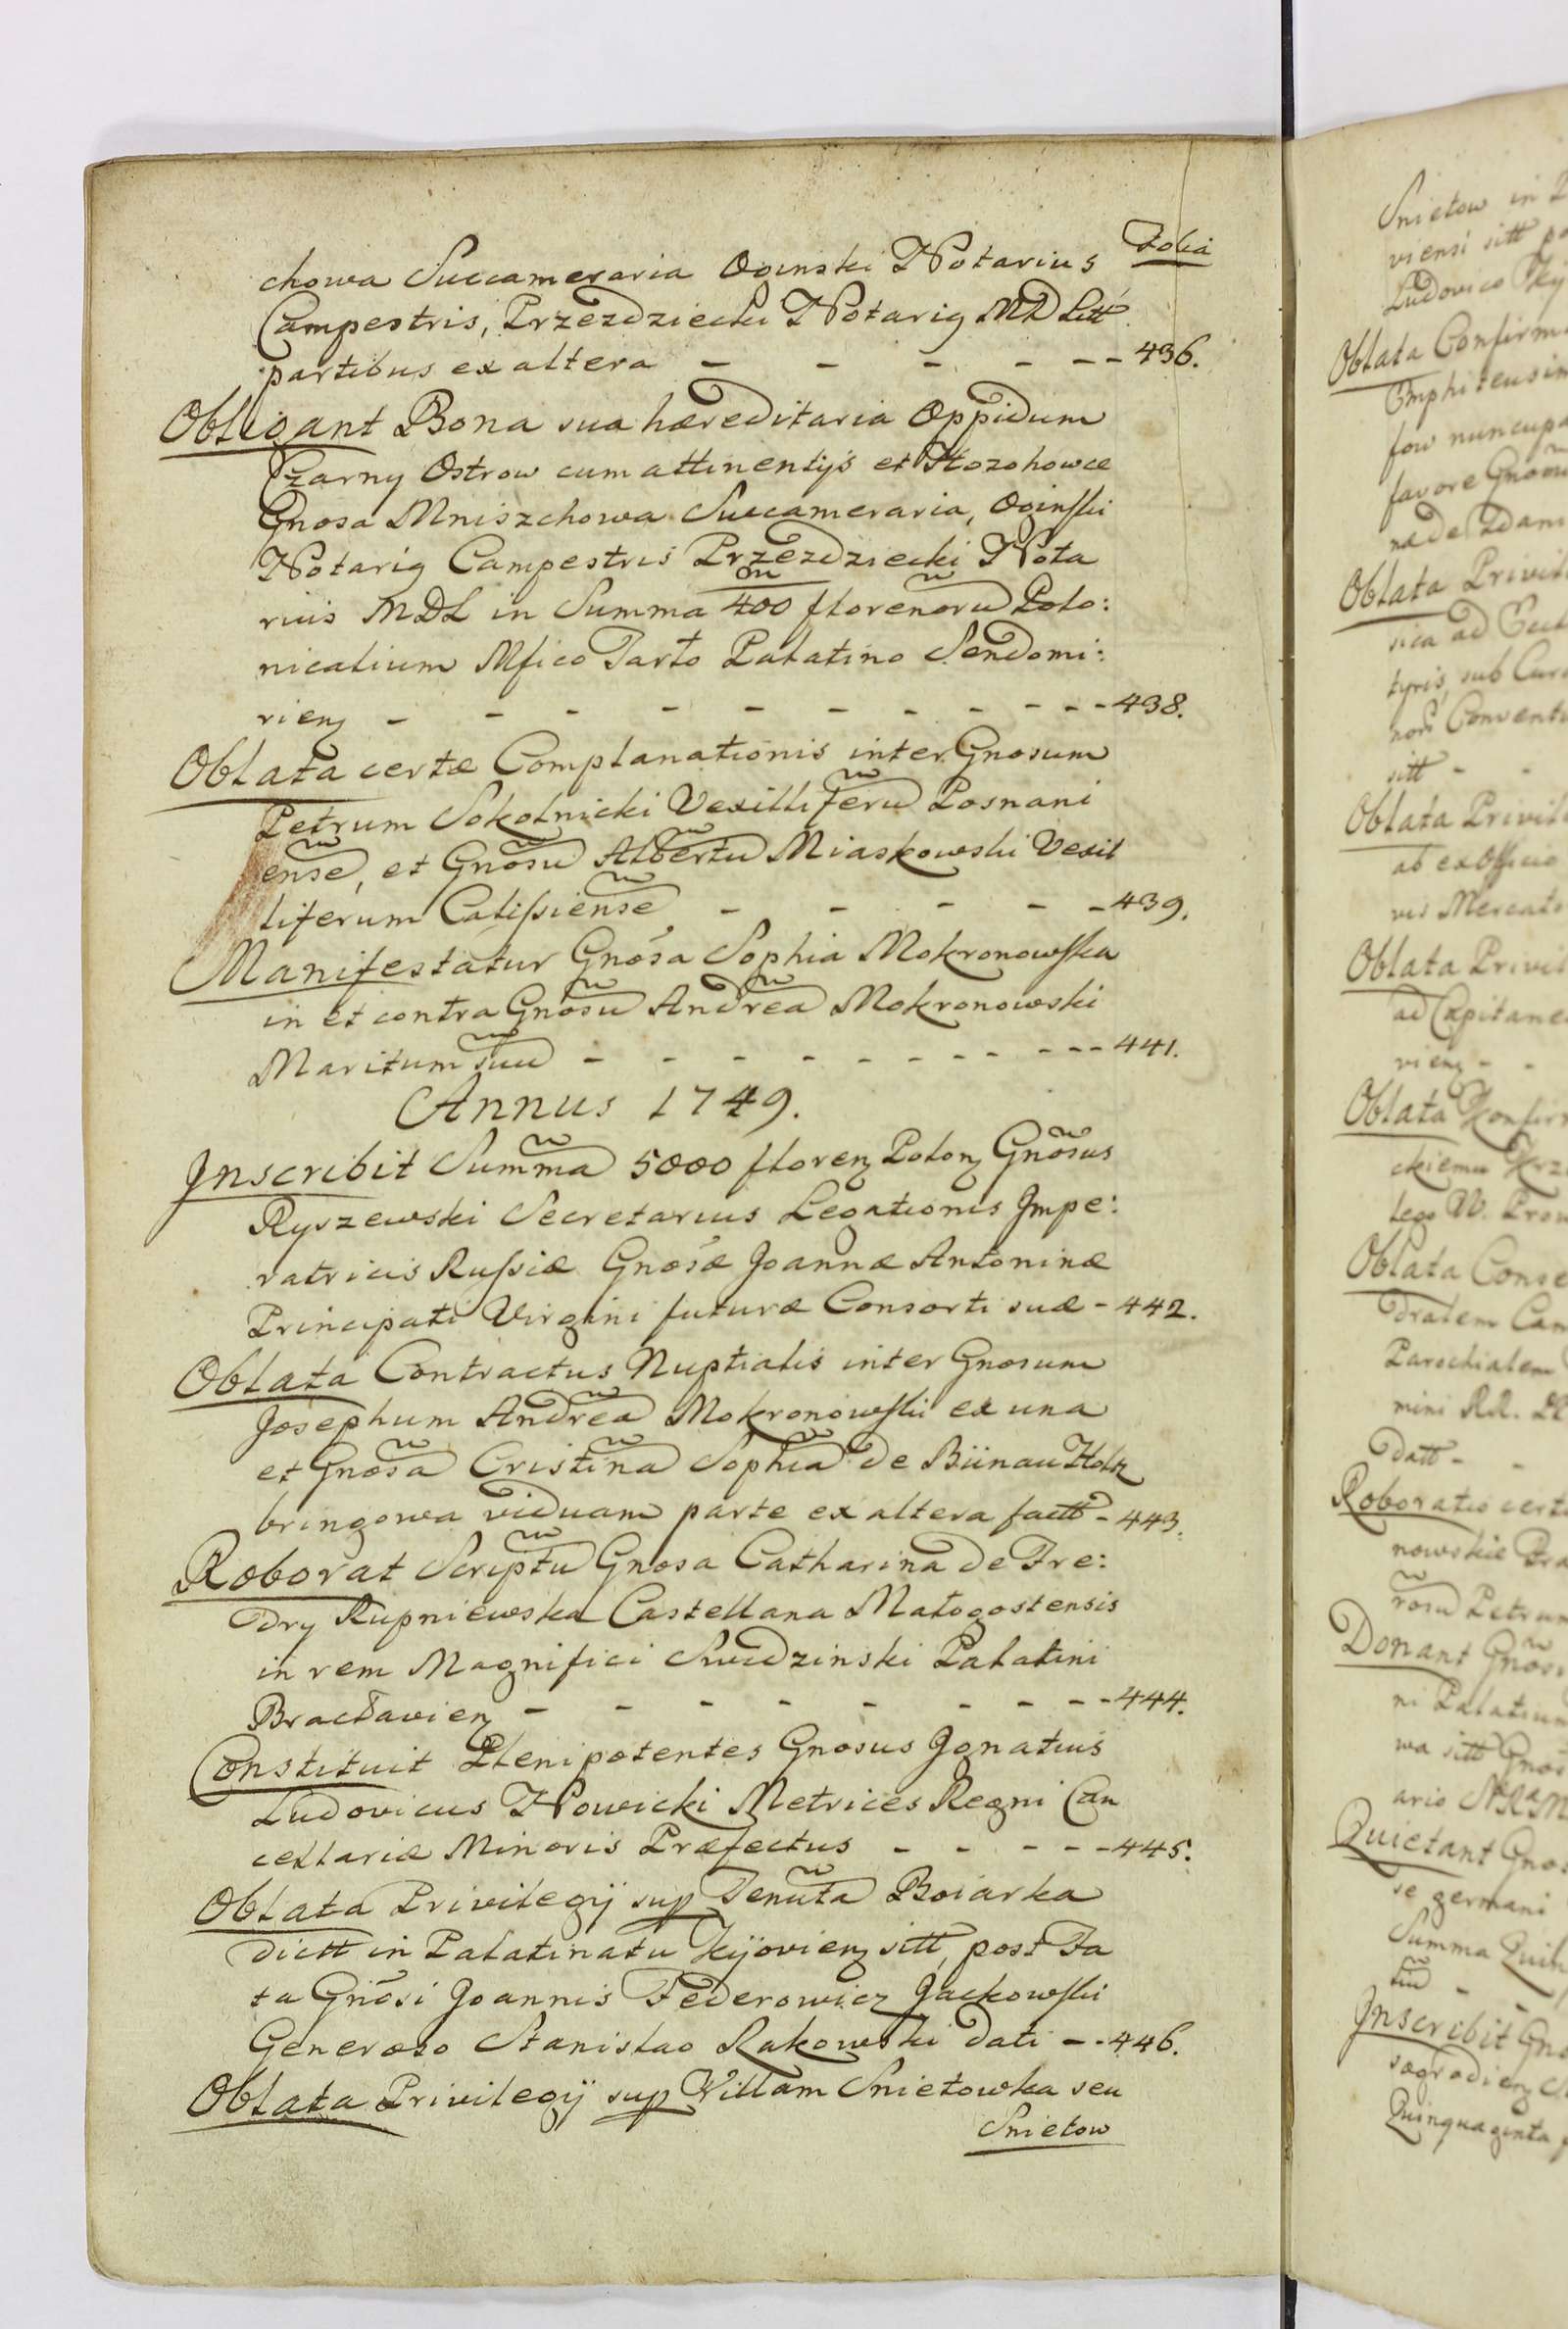 Folia
chowa Succameraria Oginski Notarius
Campestris, Przezdziecki Notarig MD Litt
partibus ex altera - - - - - - 436.
Obligant Bona sua hæreditaria Oppidum
Czarny Ostrow cum attinentijs et Hozohowce
Gnosa Mniszchowa Succameraria, Oginski
Notarig Campestris Przezdziecki Nota
rius MDL in Summa 400 florenorũ Polo:
nicalium Mfico Tarło Palatino Sendomi:
rienz - - - - - - - - - - - 438.
Oblata certæ Complanationis inter Gnosum
Petrum Sokolnicki Vexilliferũ Posnani
ensẽ, et Gnosũ Albertũ Miaskowski Vexil
liferum Calissiensẽ - - - - - 439.
Manifestatur Gnõsa Sophia Mokronowska
in et contra Gnosũ Andreã Mokronowski
Maritum suũ - - - - - - - - - - - 441.
Annus 1749.
Inscribit Summã 5000 florenz Polonz Gnõsus
Ryszewski Secretarius Legationis Impe:
ratricis Russiæ Gnosæ Joannæ Antoninæ
Principati Virgini futuræ Consorti suæ - 442.
Oblata Contractus Nuptialis inter Gnosum
Josephum Andreã Mokronowski ex una
et Gnosã Cristinã Sophiã de Bünau Holtz
bringowa viduam parte ex altera factt - 443.
Roborat Scriptũ Gnosa Catharina de Fre:
dry Rupniewska Castellana Małogostensis
in rem Magnifici Swidzinski Palatini
Bracławienz - - - - - - - - 444.
Constituit Plenipotentes Gnosus Ignatius
Ludovicus Nowicki Metrices Regni Can
cellariæ Minoris Præfectus - - - - - 445.
Oblata Privilegij sup Tenutã Boiarka
dictt in Palatinatu Kijovienz sitt, post Fa
ta Gnõsi Joannis Federowicz Jackowski
Generoso Stanislao Rakowski dati - - 446.
Oblata Privilegij sup Villam Snietowka seu
Snietow
Snietow in
viensi sitt
Ludovico
Oblata Confirm
Emphiteusim
fow nuncupa
favore
nade
Oblata Privil
sica ad
tyris, sub
Conventu
sitt - -
Oblata Privil
ab ex Officio
vis Mercato
Oblata Privil
ad Capitane
vienz - -
Oblata Konfir
ckiemu Krz
tego W.
Oblata Conse
dralem Cam
Parochialem
mini RR.
datt - -
Roboratio certi
nowskie
rosũ Petrum
Donant Gnõsi
ni Palatinu
wa sitt Gnos
ario
Quietant Gnos
se germani
Summa
Inscribit Gno
Quinquaginta